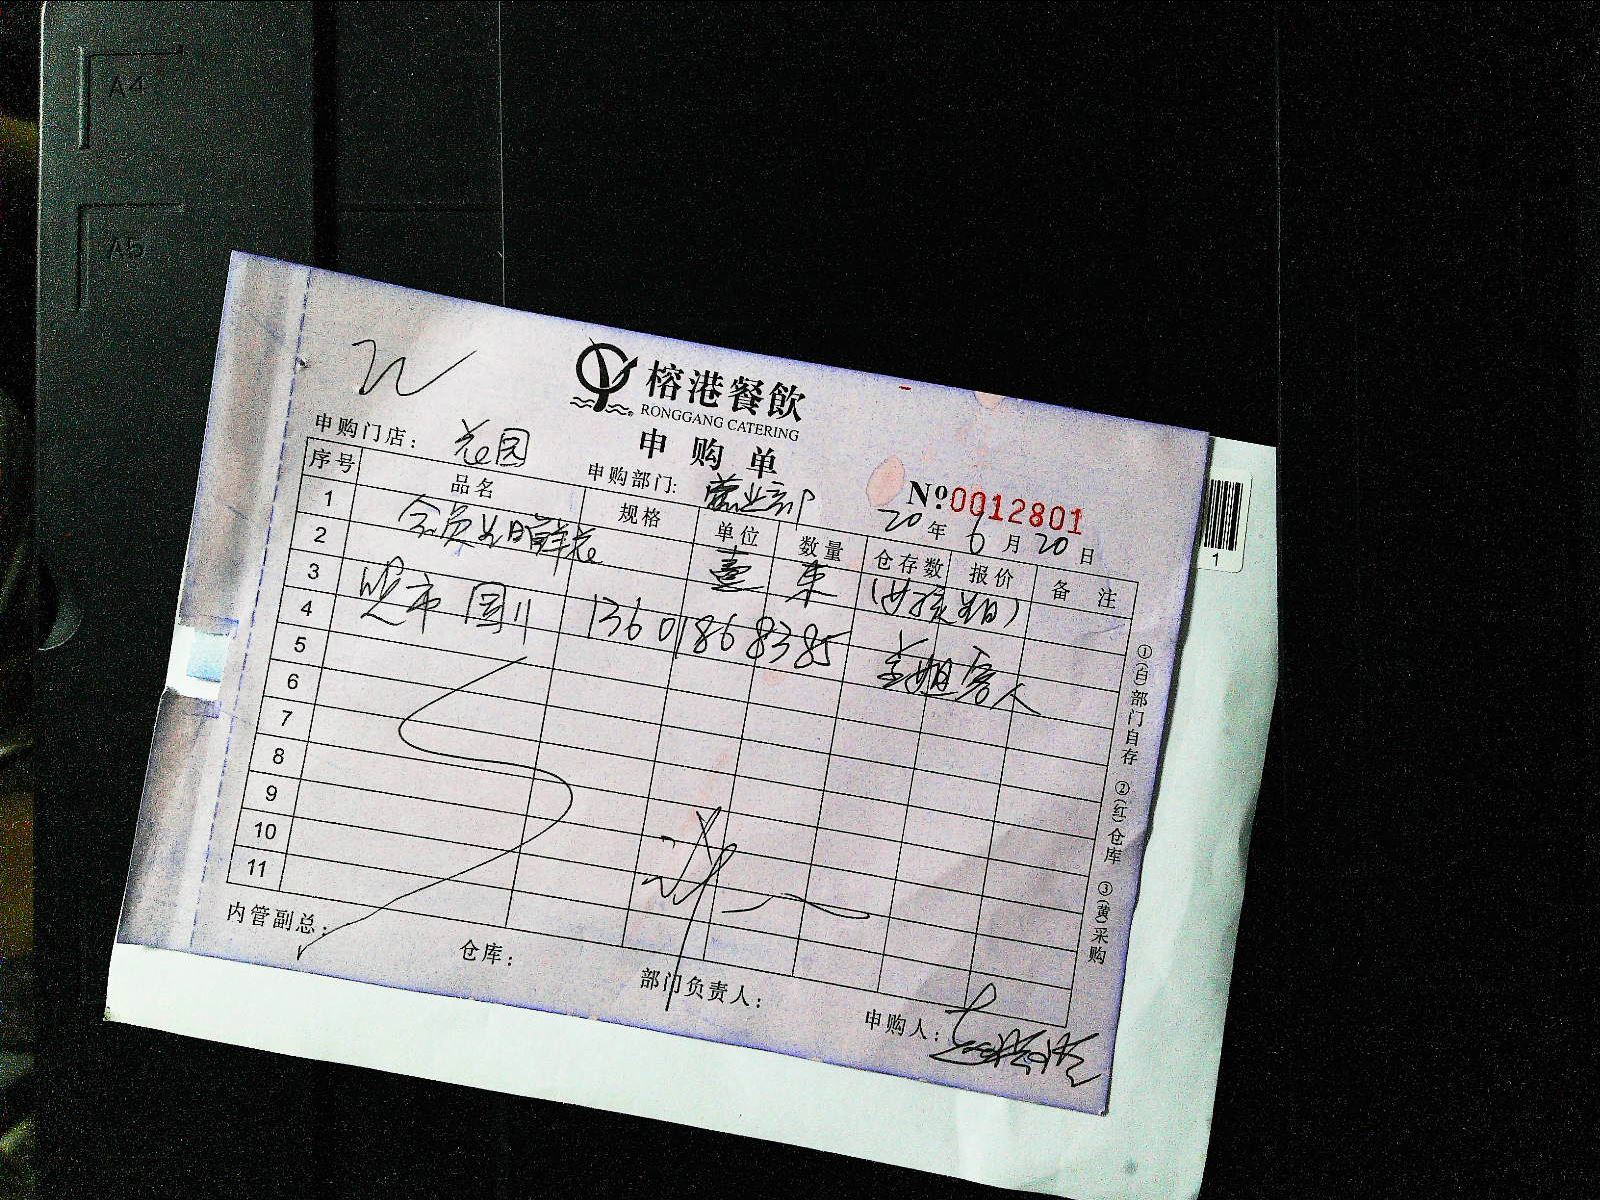 A4
A5
榕港餐飲
RONGGANG CATERING
申购单
申购门店: 花园
申购部门: 营业部
№0012801
20年6月20日
序号 品名 规格 单位 数量 仓存数 报价 备注
1 会员生日鲜花 壹 束 (女孩生日)
2
3 13601868385 客人
4
5
6
7
8
9
10
11
内管副总:
仓库:
部门负责人:
申购人:
①(白)部门自存 ②(红)仓库 ③(黄)采购
1